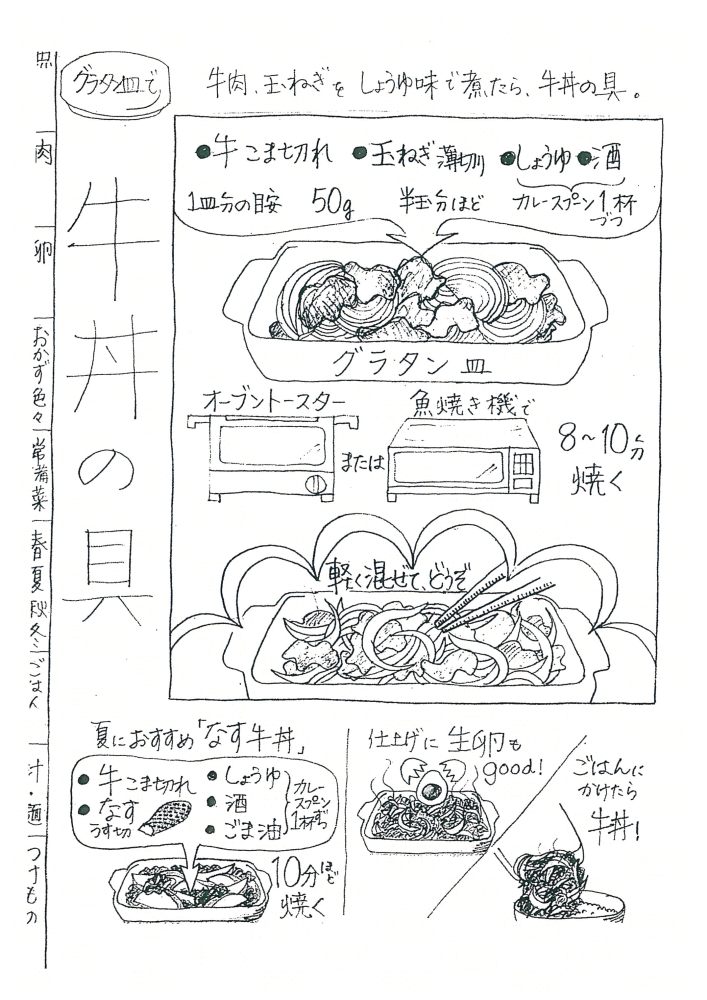 グラタン皿で
牛肉、玉ねぎを しょうゆ味で煮たら、牛丼の具。
牛丼の具
●牛こま切れ ●玉ねぎ薄切り ●しょうゆ ●酒
1皿分の目安 50g 半玉分ほど カレースプーン1杯
づつ
グラタン皿
オーブントースター
または
魚焼き機で
8〜10分
焼く
軽く混ぜて、どうぞ
夏におすすめ「なす牛丼」
●牛こま切れ
●なす
うす切
●しょうゆ
●酒
●ごま油
カレー
スプーン
1杯ずつ
10分ほど
焼く
仕上げに 生卵も
good!
ごはんに
かけたら
牛丼!
肉
卵
おかず色々
常備菜
春夏秋冬
ごはん
汁・麺
つけもの